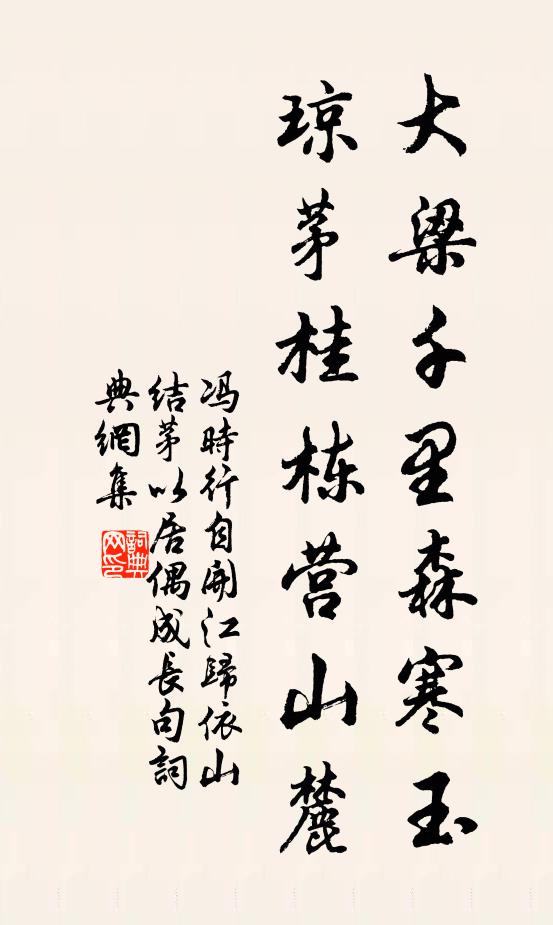 大梁千里森寒玉
琼茅桂栋营山麓
冯時行自開江歸依山
结茅以居偶成長句詞
典網集
詞典网印